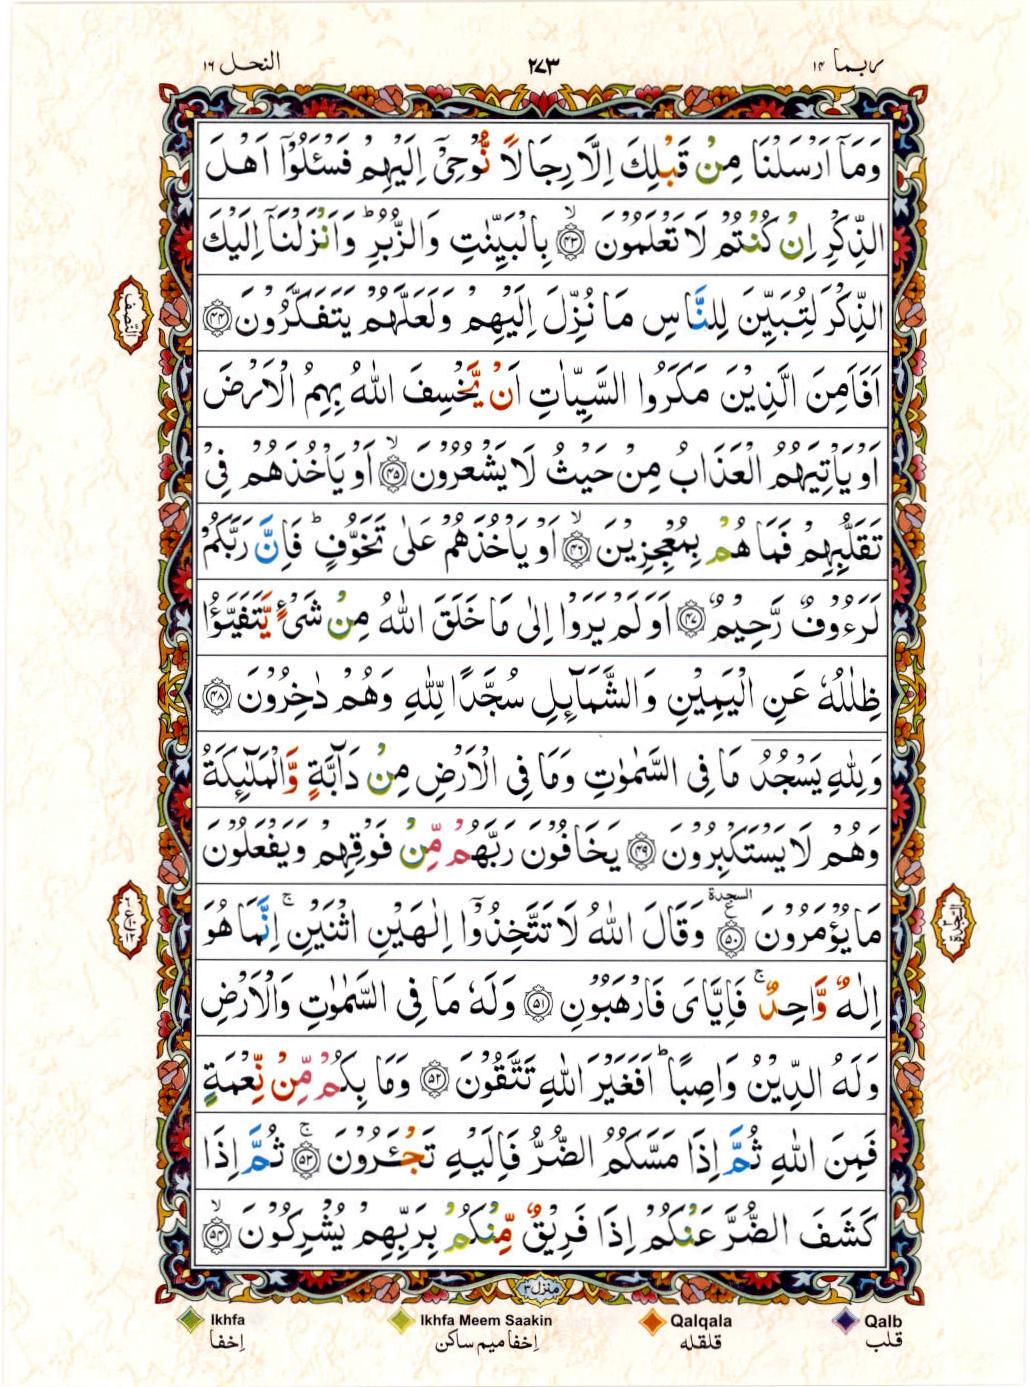 ربما ١٤
٢٧٣
النحل ١٦
وَمَاۤ اَرْسَلْنَا مِنْ قَبْلِكَ اِلَّا رِجَالًا نُّوْحِيْۤ اِلَيْهِمْ فَسْـَٔلُوْۤا اَهْلَ
الذِّكْرِ اِنْ كُنْتُمْ لَا تَعْلَمُوْنَ ۙ‏﴿۴۳﴾ بِالْبَيِّنٰتِ وَالزُّبُرِ ؕ وَاَنْزَلْنَاۤ اِلَيْكَ
الذِّكْرَ لِتُبَيِّنَ لِلنَّاسِ مَا نُزِّلَ اِلَيْهِمْ وَلَعَلَّهُمْ يَتَفَكَّرُوْنَ ﴿۴۴﴾
النصف
اَفَاَمِنَ الَّذِيْنَ مَكَرُوا السَّيِّاٰتِ اَنْ يَّخْسِفَ اللّٰهُ بِهِمُ الْاَرْضَ
اَوْ يَاْتِيَهُمُ الْعَذَابُ مِنْ حَيْثُ لَا يَشْعُرُوْنَ ۙ‏﴿۴۵﴾ اَوْ يَاْخُذَهُمْ فِيْ
تَقَلُّبِهِمْ فَمَا هُمْ بِمُعْجِزِيْنَ ۙ‏﴿۴۶﴾ اَوْ يَاْخُذَهُمْ عَلٰى تَخَوُّفٍ ؕ فَاِنَّ رَبَّكُمْ
لَرَءُوْفٌ رَّحِيْمٌ ﴿۴۷﴾ اَوَلَمْ يَرَوْا اِلٰى مَا خَلَقَ اللّٰهُ مِنْ شَيْءٍ يَّتَفَيَّؤُا
ظِلٰلُهٗ عَنِ الْيَمِيْنِ وَالشَّمَآئِلِ سُجَّدًا لِّلّٰهِ وَهُمْ دٰخِرُوْنَ ﴿۴۸﴾
وَلِلّٰهِ يَسْجُدُ مَا فِى السَّمٰوٰتِ وَمَا فِى الْاَرْضِ مِنْ دَآبَّةٍ وَّالْمَلٰٓئِكَةُ
وَهُمْ لَا يَسْتَكْبِرُوْنَ ﴿۴۹﴾ يَخَافُوْنَ رَبَّهُمْ مِّنْ فَوْقِهِمْ وَيَفْعَلُوْنَ
مَا يُؤْمَرُوْنَ ﴿۵۰﴾ السجدة ع وَقَالَ اللّٰهُ لَا تَتَّخِذُوْۤا اِلٰهَيْنِ اثْنَيْنِ ۚ اِنَّمَا هُوَ
السجدة ۳
ع ۶ ۱۰ ۱۲
اِلٰهٌ وَّاحِدٌ ۚ فَاِيَّايَ فَارْهَبُوْنِ ﴿۵۱﴾ وَلَهٗ مَا فِى السَّمٰوٰتِ وَالْاَرْضِ
وَلَهُ الدِّيْنُ وَاصِبًا ؕ اَفَغَيْرَ اللّٰهِ تَتَّقُوْنَ ﴿۵۲﴾ وَمَا بِكُمْ مِّنْ نِّعْمَةٍ
فَمِنَ اللّٰهِ ثُمَّ اِذَا مَسَّكُمُ الضُّرُّ فَاِلَيْهِ تَجْـَٔرُوْنَ ۚ‏﴿۵۳﴾ ثُمَّ اِذَا
كَشَفَ الضُّرَّ عَنْكُمْ اِذَا فَرِيْقٌ مِّنْكُمْ بِرَبِّهِمْ يُشْرِكُوْنَ ۙ‏﴿۵۴﴾
منزل ۳
Ikhfa Ikhfa Meem Saakin Qalqala Qalb
إخفا إخفا ميم ساكن قلقله قلب